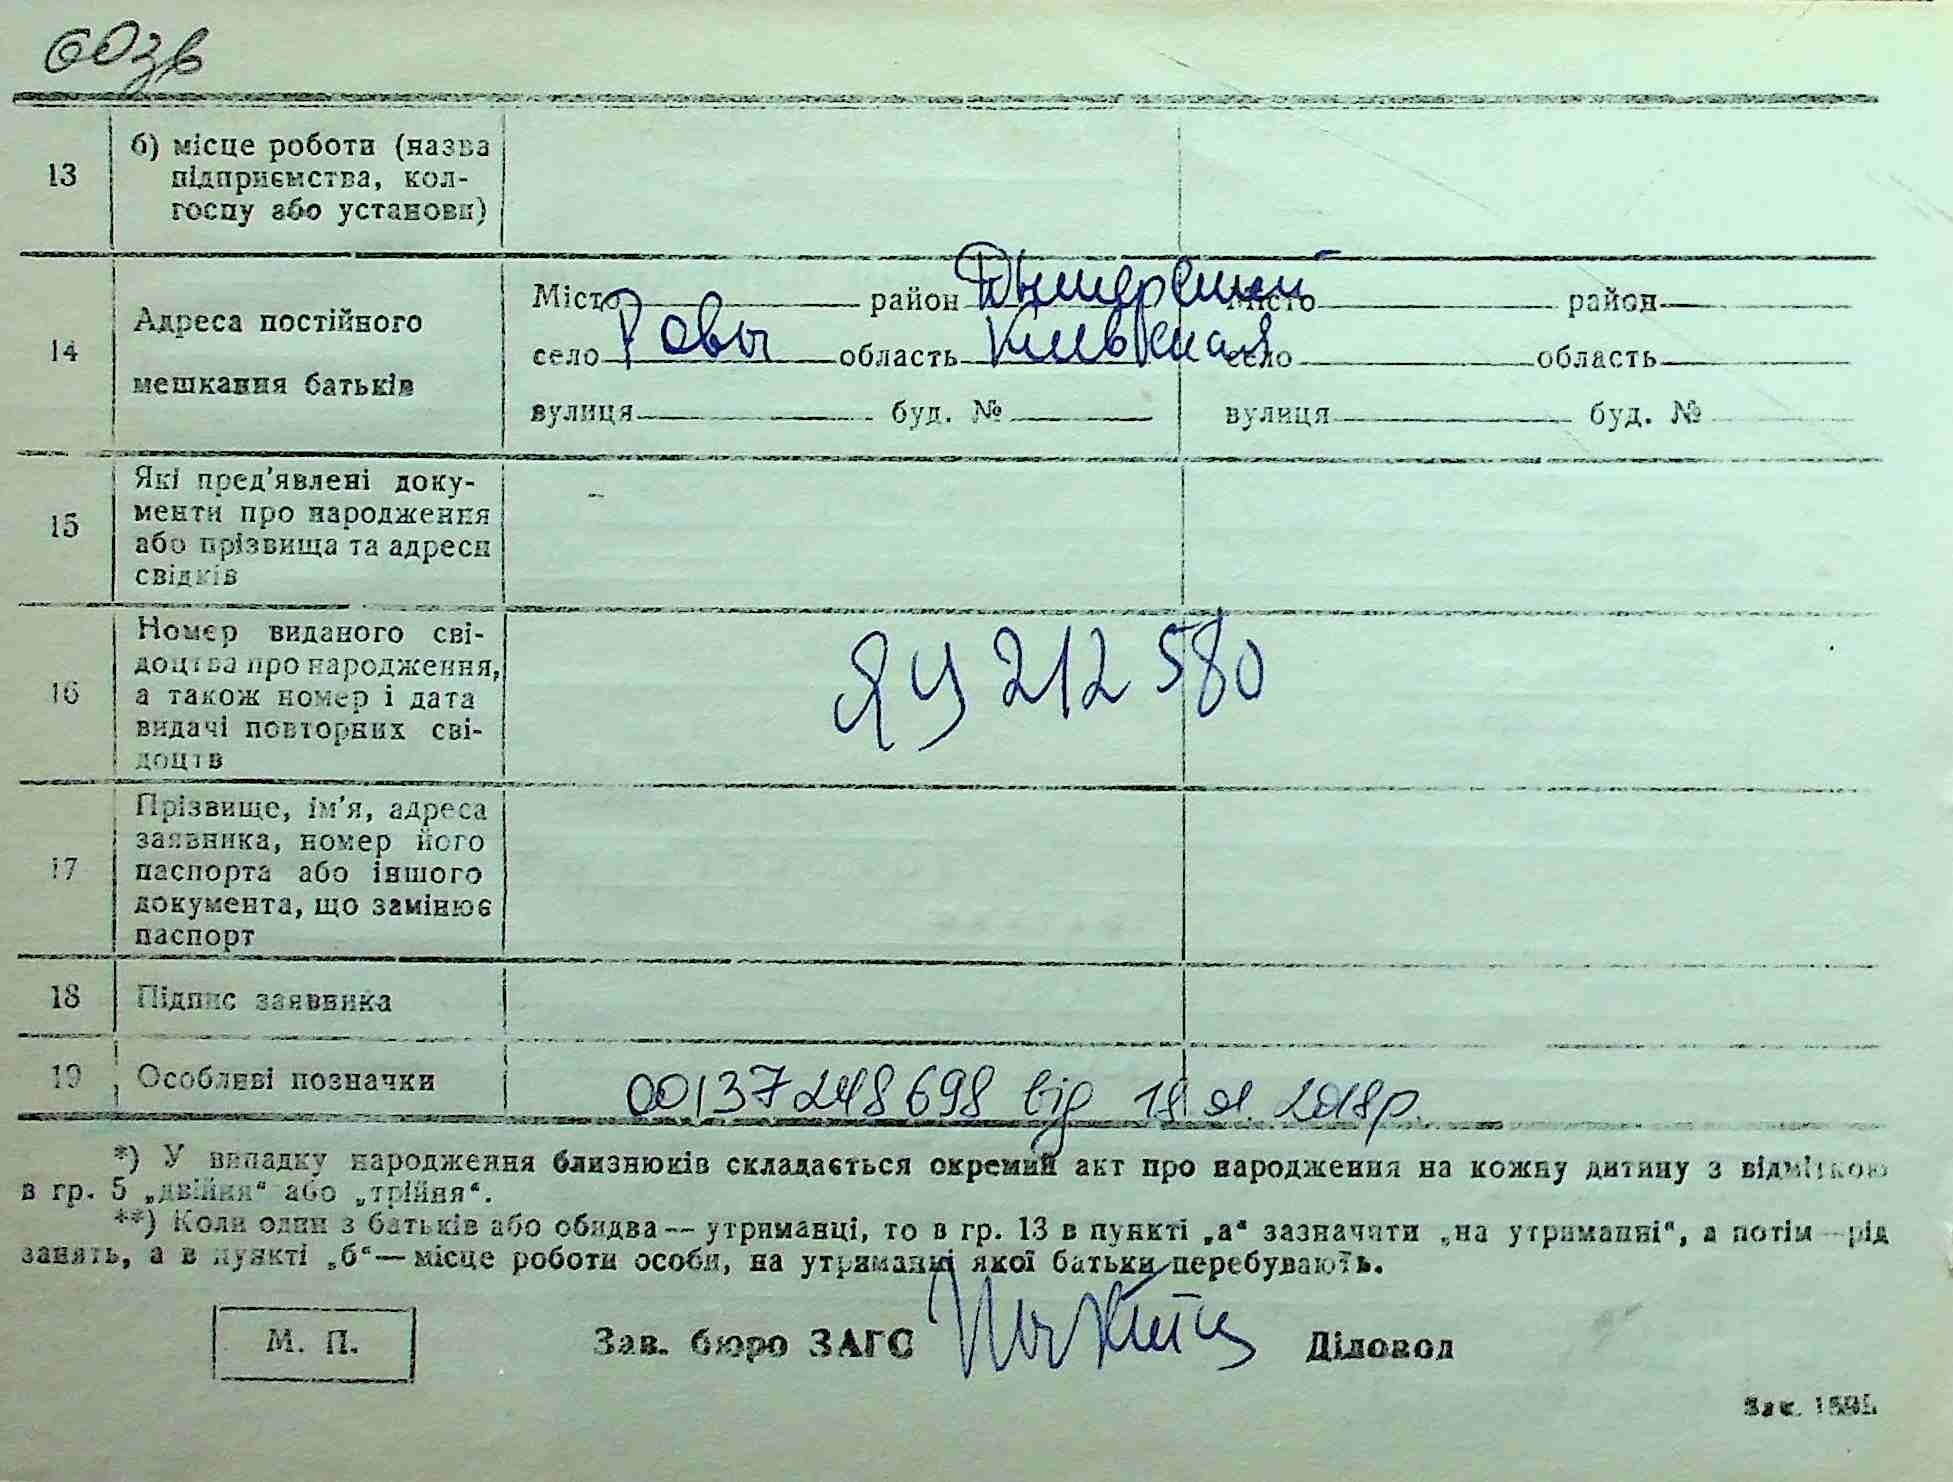 13 б) місце роботи (назва
підприємства, кол-
госпу або установи)
Місто район Дымерский Місто район
14 Адреса постійного
село Ровы область Киевская село область
мешкання батьків
вулиця буд. № вулиця буд. №
Які пред'явлені доку-
15 менти про народження
або прізвища та адреси
свідків
Номер виданого сві-
доцтва про народження,
16 а також номер і дата ЯЧ 212580
видачі повторних сві-
доцтв
Прізвище, ім'я, адреса
заявника, номер його
17 паспорта або іншого
документа, що замінює
паспорт
18 Підпис заявника
19 Особливі позначки 00137248698 від 18.01.2018р.
*) У випадку народження близнюків складається окремий акт про народження на кожну дитину з відміткою
в гр. 5 „двійня“ або „трійня“.
**) Коли один з батьків або обидва — утриманці, то в гр. 13 в пункті „а“ зазначити „на утриманні“, а потім — рід
занять, а в пункті „б“ — місце роботи особи, на утриманні якої батьки перебувають.
М. П. Зав. бюро ЗАГС Діловод
Зак.